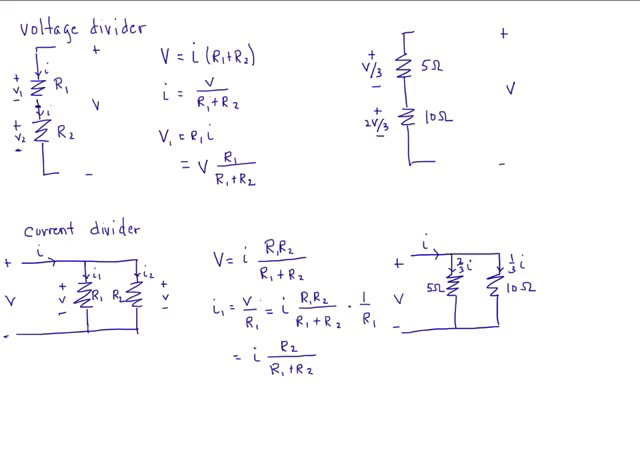 voltage divider
i
+ V₁ − R₁
i
+ V₂ − R₂
+ V −
V = i (R₁+R₂)
i = V / (R₁+R₂)
V₁ = R₁ i
= V R₁ / (R₁+R₂)
+ V/3 − 5Ω
+ 2V/3 − 10Ω
+ V −
current divider
i
i₁ i₂
+ V − + V − R₁ R₂ + V −
V = i R₁R₂ / (R₁+R₂)
i₁ = V/R₁ = i R₁R₂ / (R₁+R₂) · 1/R₁
= i R₂ / (R₁+R₂)
i
2/3 i 1/3 i
+ V − 5Ω 10Ω